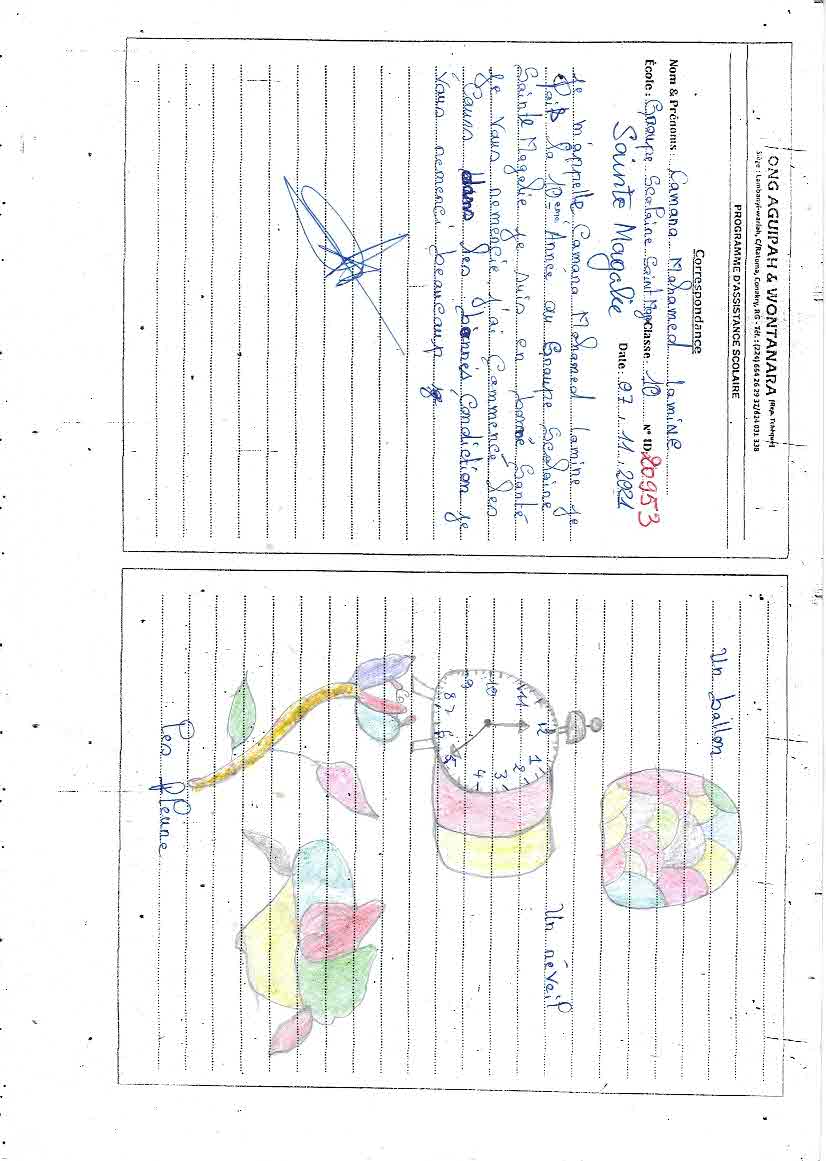 ONG AGUIPAH & WONTANARA
PROGRAMME D'ASSISTANCE SCOLAIRE
Correspondance
Nom & Prénoms : Camara Mohamed lamine
École : Groupe Scolaire Saint Classe : 10 N° ID 20953
Sainte Magalie Date : 07 / 11 / 2021
Je m'appelle Camara Mohamed Lamine je
fais la 10ème Année au Groupe Scolaire
Sainte Magalie je suis en bonne Santé
Je vous remercie j'ai Commencé les
Cours dans les bonnes Condiction je
vous remerci beaucoup
Un ballon
Un réveil
12
1
2
3
4
5
6
7
8
9
10
11
Les fleure